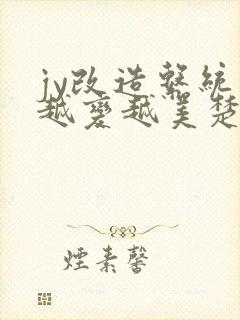 jy改造系統
越變越美楚
煙素馨